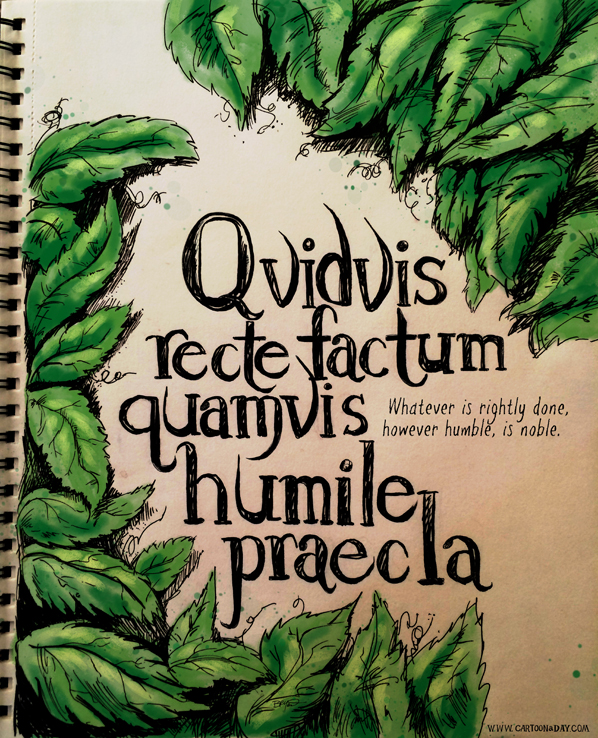 Qvidvis
recte factum
quamvis
Whatever is rightly done,
however humble, is noble.
humile
praecla
WWW.CARTOONADAY.COM